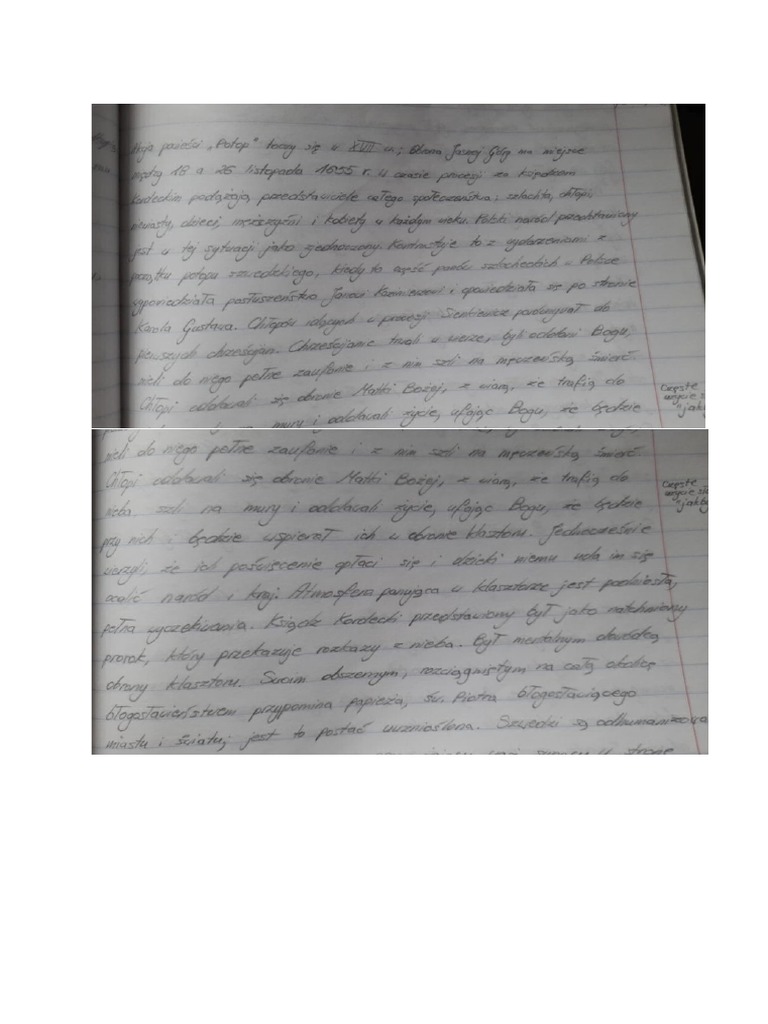 Akcja powieści „Potop" toczy się w XVII w.; Obrona Jasnej Góry ma miejsce
między 18 a 26 listopada 1655 r. W czasie procesji za księdzem
Kordeckim podążają przedstawiciele całego społeczeństwa; szlachta, chłopi,
niewiasty, dzieci, mężczyźni i kobiety w każdym wieku. Polski naród przedstawiony
jest w tej sytuacji jako zjednoczony. Kontrastuje to z wydarzeniami z
początku potopu szwedzkiego, kiedy to część panów szlacheckich w Polsce
wypowiedziała posłuszeństwo Janowi Kazimierzowi i opowiedziała się po stronie
Karola Gustawa. Chłopów idących w procesji Sienkiewicz porównywał do
pierwszych chrześcijan. Chrześcijanie trwali w wierze, byli oddani Bogu,
mieli do niego pełne zaufanie i z nim szli na męczeńską śmierć
Chłopi oddawali się obronie Matki Bożej, z wiarą, że trafią do
mury i oddawali życie, ufając Bogu, że będzie
Częste
użycie
"jak
mieli do niego pełne zaufanie i z nim szli na męczeńską śmierć
Chłopi oddawali się obronie Matki Bożej, z wiarą, że trafią do
nieba szli na mury i oddawali życie, ufając Bogu, że będzie
przy nich i będzie wspierał ich w obronie klasztoru. Jednocześnie
wierzyli, że ich poświęcenie opłaci się i dzięki niemu uda im się
ocalić naród i kraj. Atmosfera panująca w klasztorze jest podniosła,
pełna wyczekiwania. Ksiądz Kordecki przedstawiony był jako natchniony
prorok, który przekazuje rozkazy z nieba. Był mentalnym dowódcą
obrony klasztoru. Swoim obszernym, rozciągniętym na całą okolicę
błogosławieństwem przypomina papieża, św. Piotra błogosławiącego
miastu i światu; jest to postać wzniosła. Szwedzi są odhumanizowa
w stronę
Częste
użycie sł
"jakby